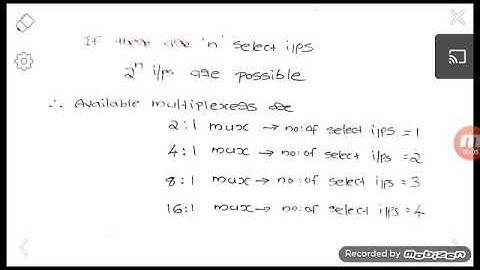 If there are 'n' select i/ps
2ⁿ i/ps are possible
∴ Available multiplexers are
2:1 mux → no:of select i/ps = 1
4:1 mux → no:of select i/ps = 2
8:1 mux → no:of select i/ps = 3
16:1 mux → no:of select i/ps = 4
Recorded by mobizen